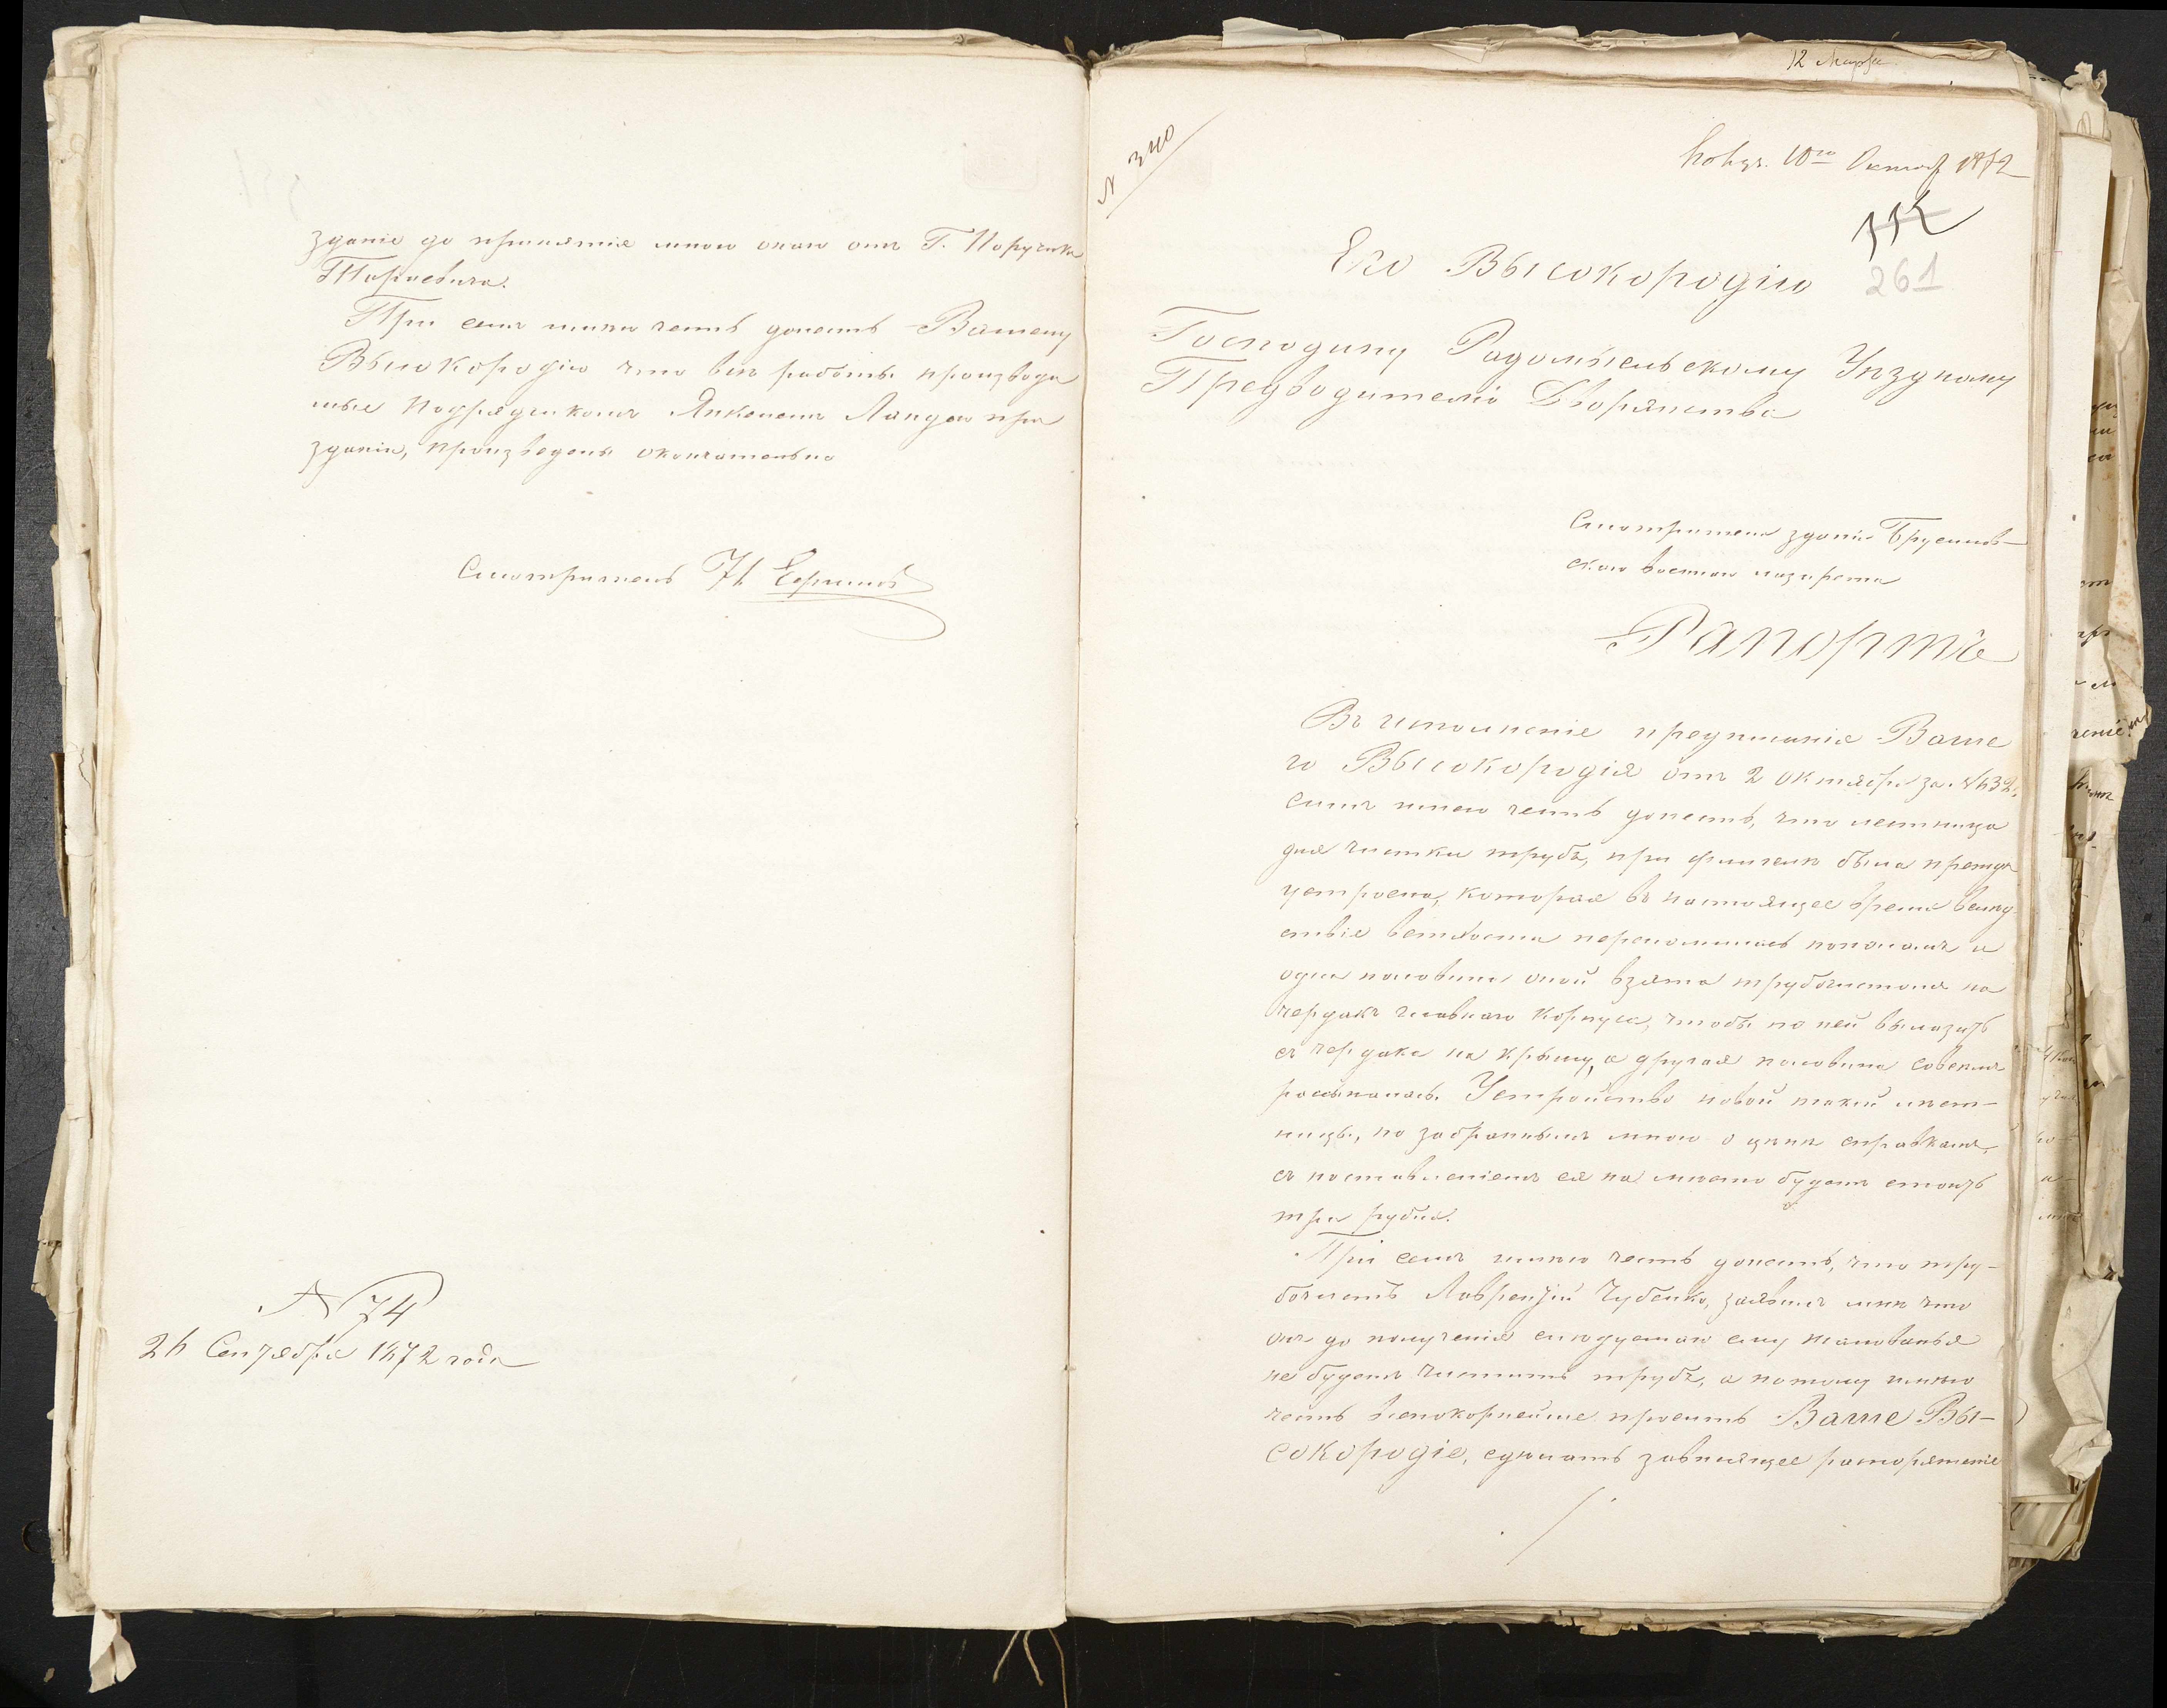 зданіе до принятія мною онаго отъ Г. Поручика
При семъ имѣю честь донесть Вашему
Высокородію что всѣ работы производи
мые подрядчикомъ Янкелемъ Ландою при
зданіи, произведены окончательно
Смотритель
N 74
26 Сентября 1872 года
12 Марта
N 340
Получ. 10го Октяб 1872
261
Его Высокородію
Господину Радомысльскому Уѣздному
Предводителю Дворянства
Смотрителя зданія Брусилов-
скаго военнаго лазарета
Рапортъ
Въ исполненіе предписанія Ваше
го Высокородія отъ 2 октября за N
симъ имѣю честь донесть, что лестница
для чистки трубъ, при флигелѣ была прежде
устроена, которая въ настоящее время вслѣд
ствіе ветхости переломилась пополамъ и
одна половина оной взята трубочистомъ на
чердакъ главнаго корпуса, чтобы по ней вылазить
съ чердака на крышу, а другая половина совсемъ
розсыпалась. Устройство новой такой лѣст-
ницы, по забраннымъ мною о цѣнѣ справкамъ,
съ поставленіемъ ея на мѣсто будетъ стоить
три рубля.
При семъ имѣю честь донесть, что тру-
бочистъ Лаврентій Чубенко, заявилъ мнѣ что
онъ до полученія слѣдуемаго ему жалованья
не будетъ чистить трубъ, а потому имѣю
честь всепокорнейше просить Ваше Вы-
сокородіе, сдѣлать зависящее распоряженіе